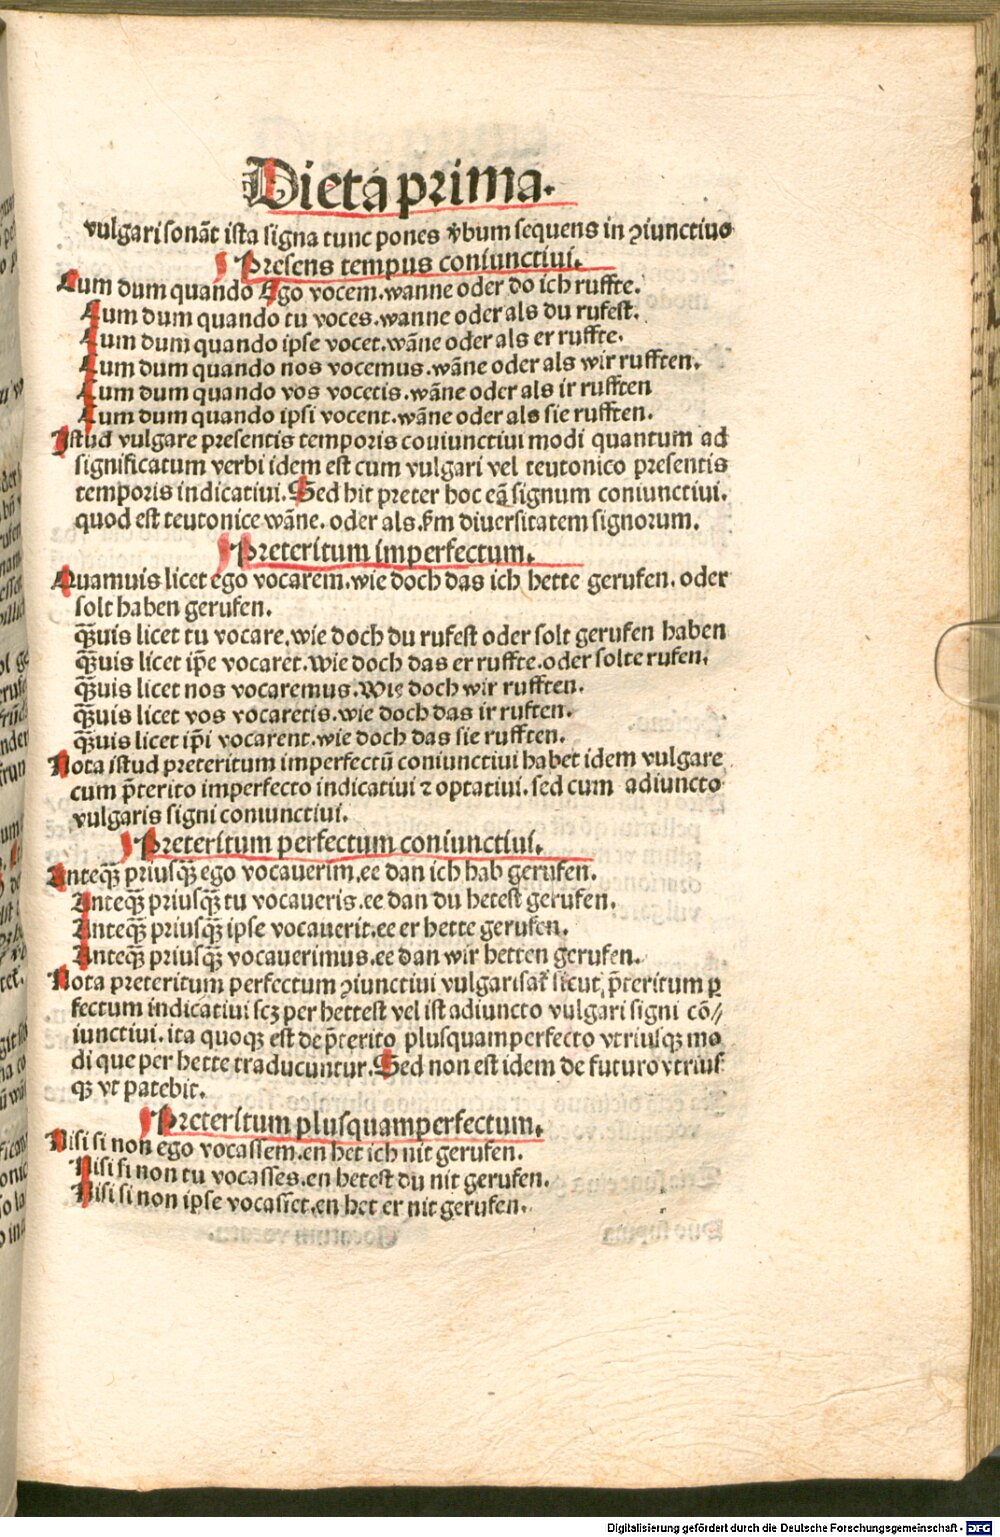 Dieta prima.
vulgari sonāt ista signa tunc pones v̄bum sequens in ꝯiunctiuo
Presens tempus coniunctiui.
Cum dum quando Ego vocem. wanne oder do ich ruffte.
Cum dum quando tu voces. wanne oder als du rufest.
Cum dum quando ipse vocet. wāne oder als er ruffte.
Cum dum quando nos vocemus. wāne oder als wir rufften.
Cum dum quando vos vocetis. wāne oder als ir rufften
Cum dum quando ipsi vocent. wāne oder als sie rufften.
Istud vulgare presentis temporis coniunctiui modi quantum ad
significatum verbi idem est cum vulgari vel teutonico presentis
temporis indicatiui. Sed hit preter hoc eā signum coniunctiui.
quod est teutonice wāne. oder als. s̄m diuersitatem signorum.
Preteritum imperfectum.
Quamuis licet ego vocarem. wie doch das ich hette gerufen. oder
solt haben gerufen.
q̄ꝫuis licet tu vocare. wie doch du rufest oder solt gerufen haben
q̄ꝫuis licet ip̄e vocaret. Wie doch das er ruffte. oder solte rufen.
q̄ꝫuis licet nos vocaremus. Wie doch wir rufften.
q̄ꝫuis licet vos vocaretis. wie doch das ir ruften.
q̄ꝫuis licet ip̄i vocarent. wie doch das sie rufften.
Nota istud preteritum imperfectū coniunctiui habet idem vulgare
cum p̄terito imperfecto indicatiui ⁊ optatiui. sed cum adiuncto
vulgaris signi coniunctiui.
Preteritum perfectum coniunctiui.
Anteq̄ꝫ priusq̄ꝫ ego vocauerim. ee dan ich hab gerufen.
Anteq̄ꝫ priusq̄ꝫ tu vocaueris. ee dan du hetest gerufen.
Anteq̄ꝫ priusq̄ꝫ ipse vocauerit. ee er hette gerufen.
Anteq̄ꝫ priusq̄ꝫ vocauerimus. ee dan wir hetten gerufen.
Nota preteritum perfectum ꝯiunctiui vulgarisat̄ sicut p̄teritum ꝑ
fectum indicatiui scꝫ per hettest vel ist adiuncto vulgari signi cō//
iunctiui. ita quoqꝫ est de p̄terito plusquamperfecto vtriusqꝫ mo
di que per hette traducuntur. Sed non est idem de futuro vtrius
qꝫ vt patebit.
Preteritum plusquamperfectum.
Nisi si non ego vocassem. en het ich nit gerufen.
Nisi si non tu vocasses. en hetest du nit gerufen.
Nisi si non ipse vocasset. en het er nit gerufen.
Digitalisierung gefördert durch die Deutsche Forschungsgemeinschaft - DFG